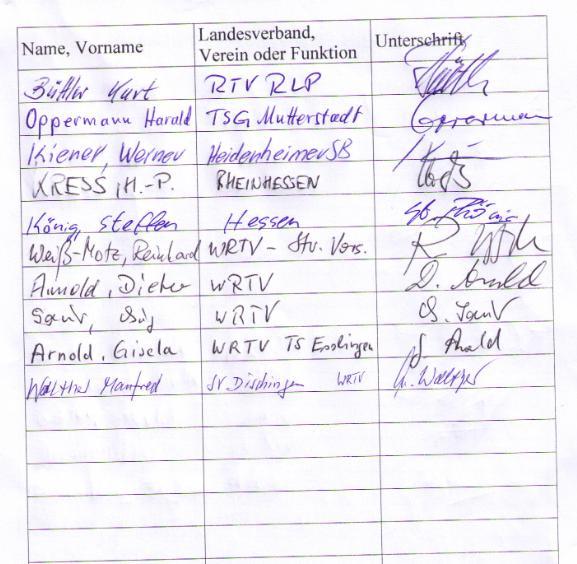 Name, Vorname Landesverband, Verein oder Funktion Unterschrift
Büttler Kurt RTV RLP
Oppermann Harald TSG Mutterstadt Opperman
Kiener, Werner Heidenheimer SB
KRESS, H.-P. RHEINHESSEN
König, Steffen Hessen St. König
Weiß-Motz, Reinhard WRTV - Stv. Vors.
Arnold, Dieter WRTV D. Arnold
WRTV
Arnold, Gisela WRTV TS Esslingen G. Arnold
Walther Manfred SV Dischingen WRTV M. Walther